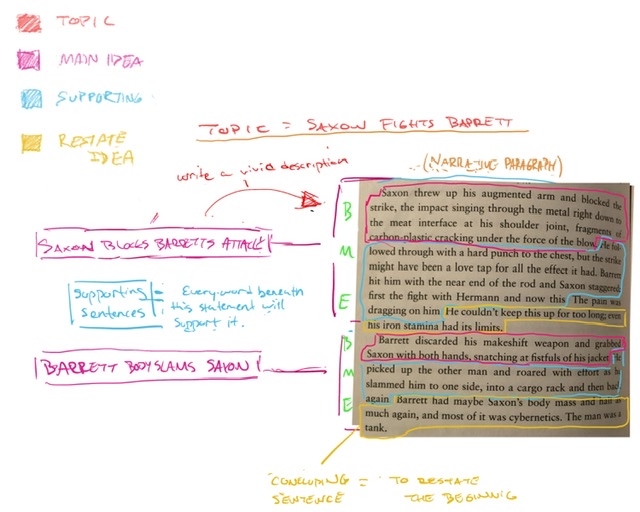 TOPIC
MAIN IDEA
SUPPORTING
RESTATE
IDEA
TOPIC = SAXON FIGHTS BARRETT
write a vivid description
(NARRATIVE PARAGRAPH)
SAXON BLOCKS BARRETTS ATTACK
Supporting
Sentences
= Every word beneath
this statement will
support it.
BARRETT BODYSLAMS SAXON
B
M
E
B
M
E
Saxon threw up his augmented arm and blocked the
strike, the impact singing through the metal right down to
the meat interface at his shoulder joint, fragments of
carbon-plastic cracking under the force of the blow. He fol-
lowed through with a hard punch to the chest, but the strike
might have been a love tap for all the effect it had. Barrett
hit him with the near end of the rod and Saxon staggered;
first the fight with Hermann and now this. The pain was
dragging on him. He couldn't keep this up for too long; even
his iron stamina had its limits.
Barrett discarded his makeshift weapon and grabbed
Saxon with both hands, snatching at fistfuls of his jacket. He
picked up the other man and roared with effort as he
slammed him to one side, into a cargo rack and then back
again. Barrett had maybe Saxon's body mass and half as
much again, and most of it was cybernetics. The man was a
tank.
CONCLUDING = TO RESTATE
SENTENCE THE BEGINNIG